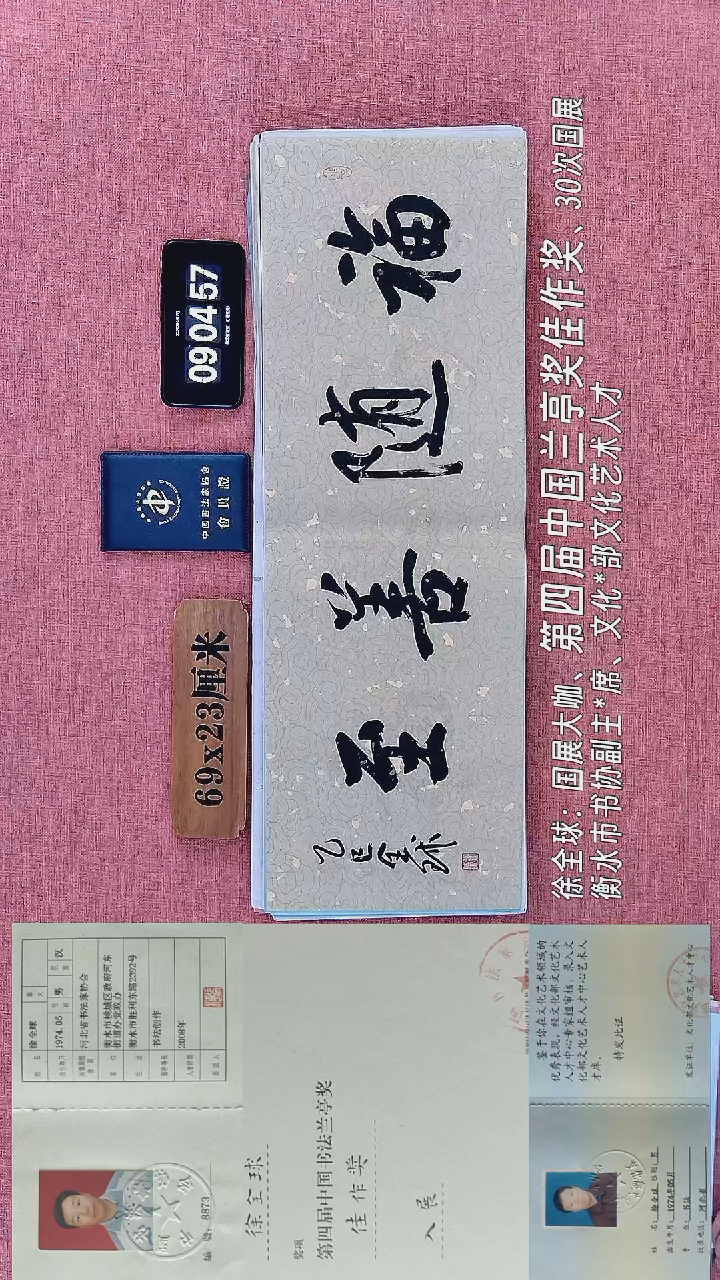 09 04 57
中國書法家協會
會員證
69x23厘米
福随善至
乙巳全球
徐全球：国展大咖、第四届中国兰亭奖佳作奖、30次国展
衡水市书协副主*席、文化*部文化艺术人才
姓名 徐全球
1974.05 性别 男 民族 汉
河北省书法家协会
衡水市桃城区政府河东
街道办党政办
衡水市胜利东路2292号
书法创作
2008年
编号: 8873
徐全球
奖项
第四届中国书法兰亭奖
佳作奖
入展
鉴于你在文化艺术领域的
优秀表现，经文化部文化艺术
人才中心专家组审核，录入文
化部文化艺术人才中心艺术人
才库。
特发此证
发证单位：文化部文化艺术人才中心
姓名：徐全球 性别：男
出生年月：1974年05月
专业：书法